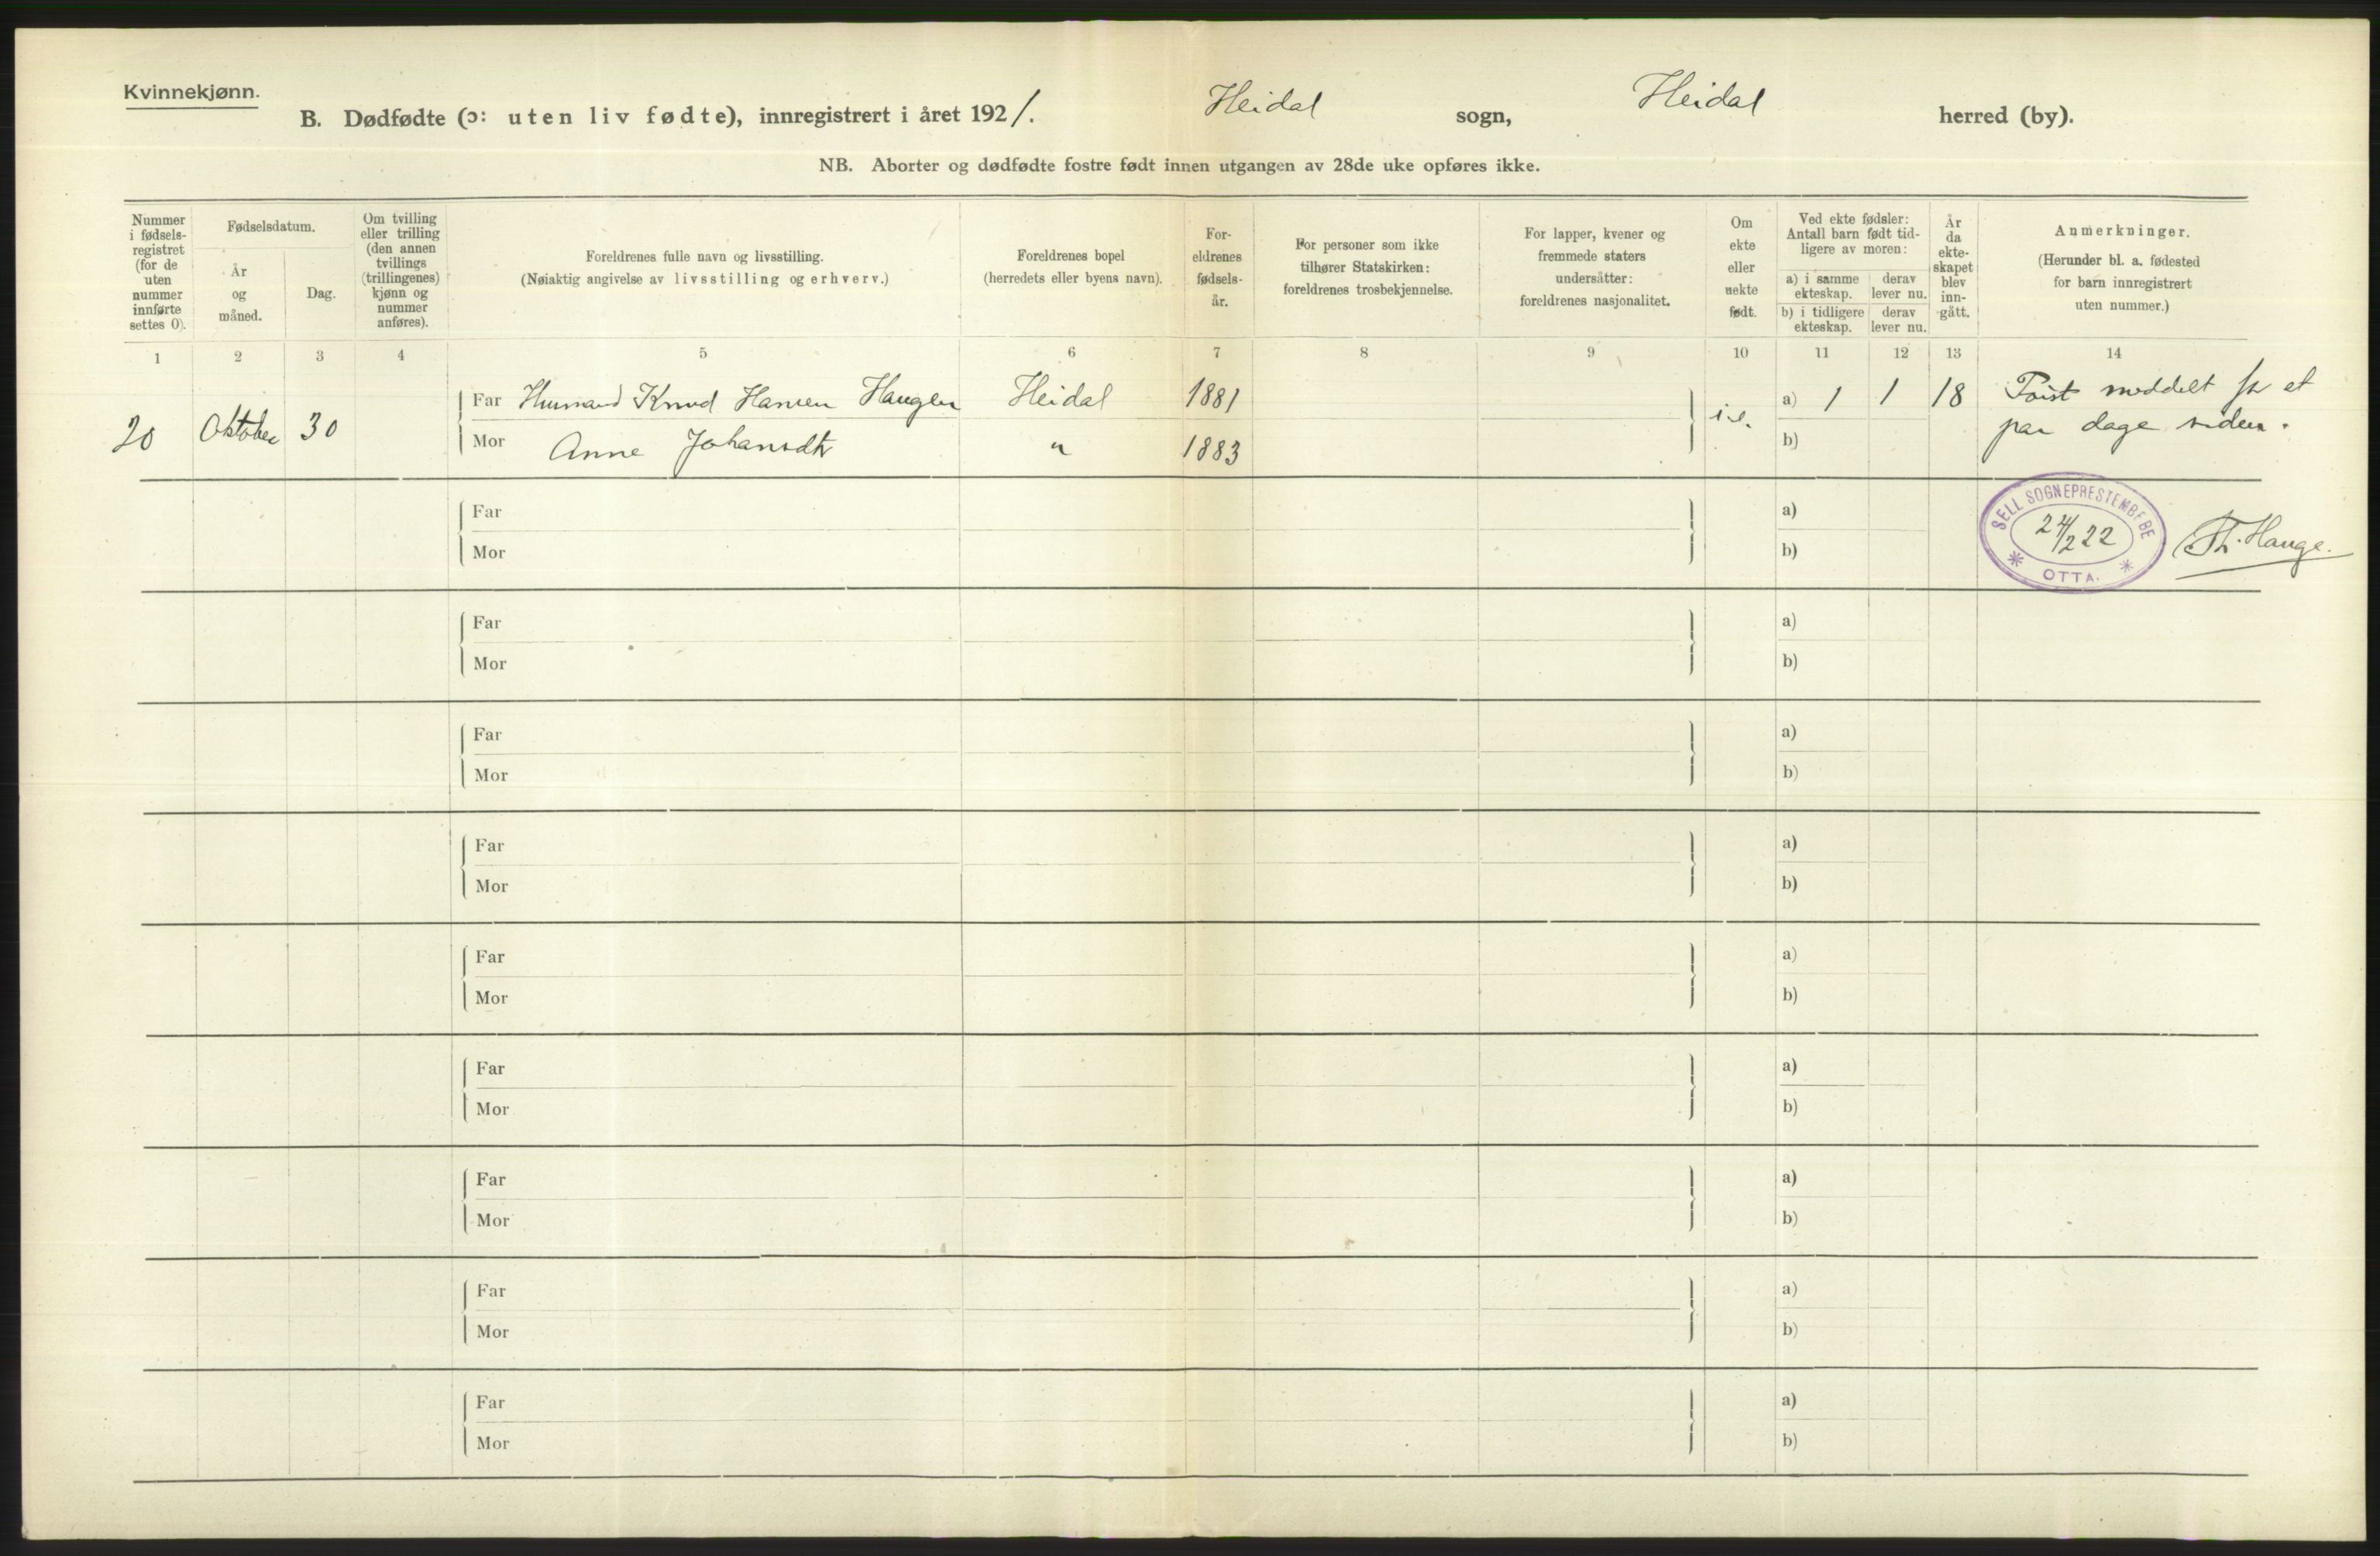 Kvinnekjønn.
B. Dødfødte (ɔ: uten liv fødte), innregistrert i året 1921. Heidal sogn, Heidal herred (by).
NB. Aborter og dødfødte fostre født innen utgangen av 28de uke opføres ikke.
Nummer i fødsels-registret (for de uten nummer innførte settes 0).
Fødselsdatum.
År og måned.
Dag.
Om tvilling eller trilling (den annen tvillings (trillingenes) kjønn og nummer anføres).
Foreldrenes fulle navn og livsstilling.
(Nøiaktig angivelse av livsstilling og erhverv.)
Foreldrenes bopel
(herredets eller byens navn).
For-eldrenes fødsels-år.
For personer som ikke tilhører Statskirken: foreldrenes trosbekjennelse.
For lapper, kvener og fremmede staters undersåtter: foreldrenes nasjonalitet.
Om ekte eller uekte født.
Ved ekte fødsler: Antall barn født tid-ligere av moren:
a) i samme ekteskap.
derav lever nu.
b) i tidligere ekteskap.
derav lever nu.
År da ekte-skapet blev inn-gått.
Anmerkninger.
(Herunder bl. a. fødested for barn innregistrert uten nummer.)
1 2 3 4 5 6 7 8 9 10 11 12 13 14
20 Oktober 30 Far Husmand Knud Hansen Haugen Heidal 1881 a) 1 1 18 Først meddelt for et
Mor Anne Johansdtr " 1883 b) par dage siden.
Far a)
Mor b)
SELL SOGNEPRESTEMBEDE
24/2 22
* OTTA. *
Th. Hauge.
Far a)
Mor b)
Far a)
Mor b)
Far a)
Mor b)
Far a)
Mor b)
Far a)
Mor b)
Far a)
Mor b)
Far a)
Mor b)
Far a)
Mor b)